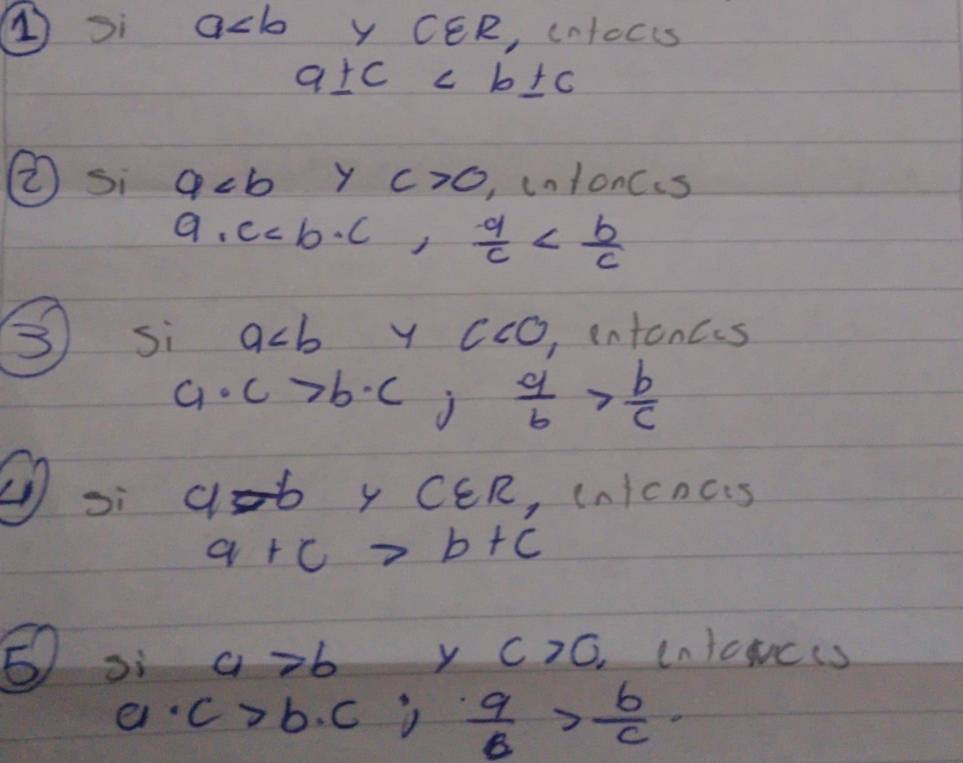 ① Si a<b y C∈R, entoces
a±c < b±c
② Si a<b y c>0, entonces
a.c<b.c , a/c < b/c
③ Si a<b y c<0, entonces
a.c>b.c ; a/b > b/c
④ Si a>b y C∈R, entonces
a+c > b+c
⑤ Si a>b y c>0, entonces
a.c>b.c ; a/c > b/c.